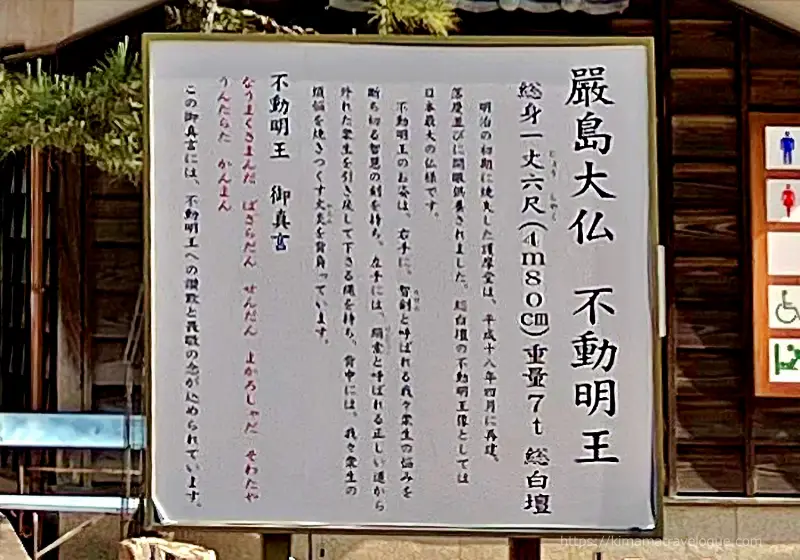 嚴島大仏 不動明王
総身一丈六尺(4m80㎝)重量7t 総白壇
じょう しゃく
明治の初期に焼失した護摩堂は、平成十八年四月に再建。
落慶並びに開眼供養されました。総白壇の不動明王像としては
日本最大の仏様です。
不動明王のお姿は、右手に、智剣と呼ばれる我々衆生の悩みを
断ち切る智慧の剣を持ち、左手には、羂索と呼ばれる正しい道から
外れた衆生を引き戻して下さる縄を持ち、背中には、我々衆生の
煩悩を焼きつくす火炎を背負っています。
不動明王 御真言
なうまくさまんだ ばさらだん せんだん まかろしゃだ そわたや
うんたらた かんまん
この御真言には、不動明王への讃歎と畏敬の念が込められています。
https://kimamatravelogue.com